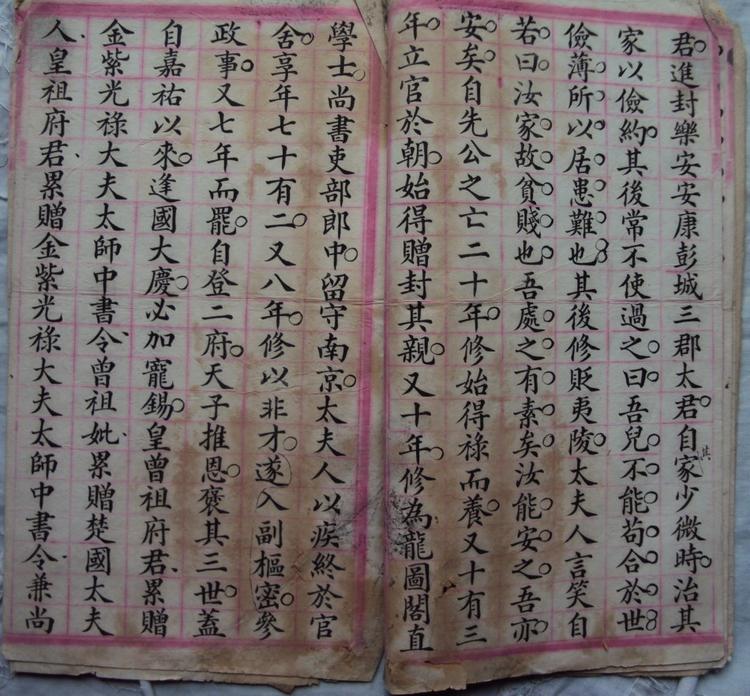 君進封樂安安康彭城三郡太君自其家少微時治其
家以儉約其後常不使過之曰吾兒不能苟合於世
儉薄所以居患難也其後修貶夷陵太夫人言笑自
若曰汝家故貧賤也吾處之有素矣汝能安之吾亦
安矣自先公之亡二十年修始得祿而養又十有三
年立官於朝始得贈封其親又十年修為龍圖閣直
學士尚書吏部郎中留守南京太夫人以疾終於官
舍享年七十有二又八年修以非才遂入副樞密參
政事又七年而罷自登二府天子推恩褒其三世蓋
自嘉祐以來逢國大慶必加寵錫皇曾祖府君累贈
金紫光祿大夫太師中書令曾祖妣累贈楚國太夫
人皇祖府君累贈金紫光祿大夫太師中書令兼尚